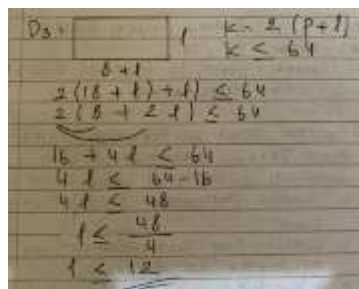 D3: l k = 2 (p+l)
k ≤ 64
8 + l
2 (18 + l) + l) ≤ 64
2 (8 + 2 l) ≤ 64
16 + 4 l ≤ 64
4 l ≤ 64 - 16
4 l ≤ 48
l ≤ 48/4
l ≤ 12